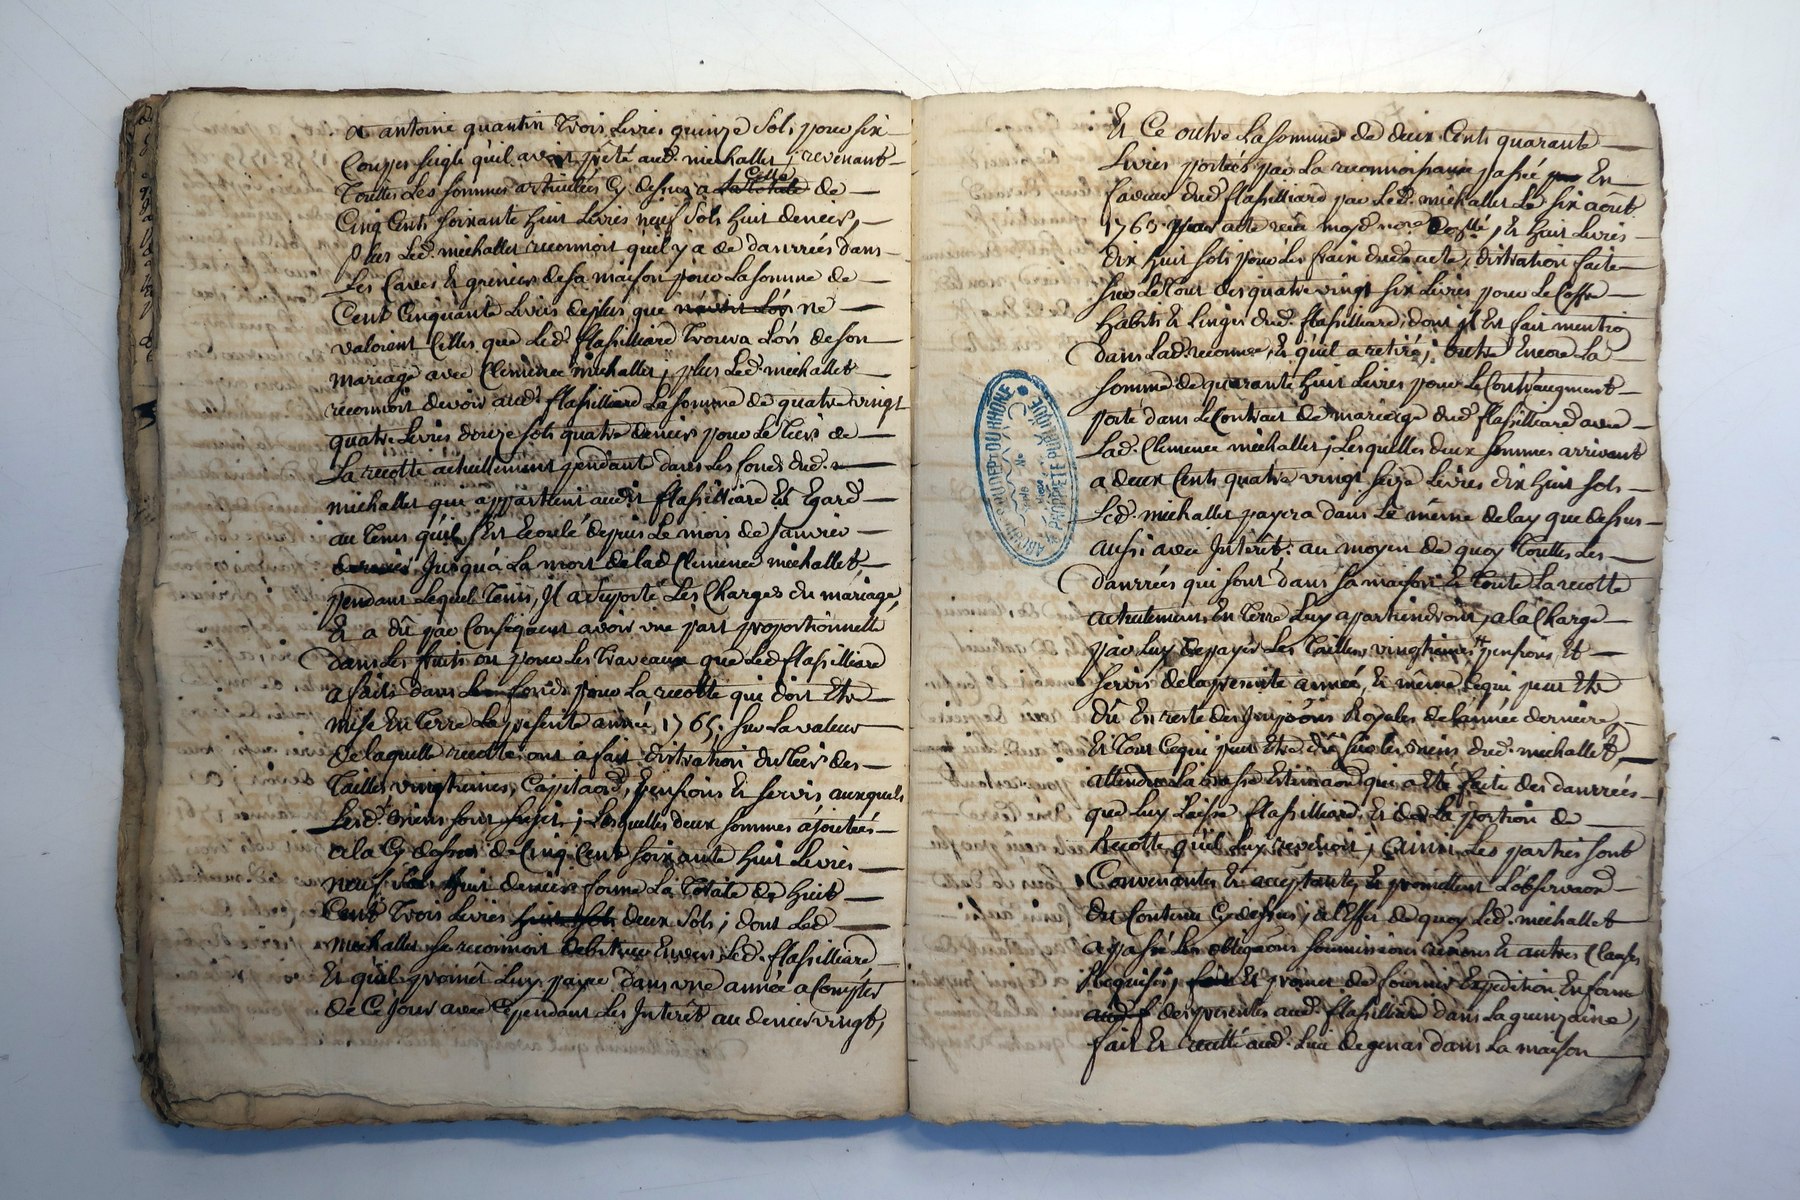 a antoine quantin trois Livres quinze sols pour six
Couppes seigle qu'il avoit prêté aud. michallet; revenant
Touttes Les sommes articulées Cy dessus a la totale Celle de
Cinq Cents soixante huit Livres neuf sols huit deniers,
plus Led. michallet reconnoit qu'il y a de danrrées dans
Les Caves Et greniers de sa maison pour La somme de
Cent Cinquante Livres de plus que ne
valoient Celles que Led. flassilliard Trouva Lors de son
mariage avec Clemence michallet, plus Led. michallet
reconnoit devoir aud. flassilliard La somme de quatre vingt
quatre Livres douze sols quatre deniers pour Le Tiers de
La recolte actuellement pendant dans Les fonds dud.
michallet qui appartient audit flassilliard Eu Egard
au Tems qu'il s'Est Ecoulé depuis Le mois de Janvier
dernier Jusqu'à La mort de lad. Clemence michallet,
pendant Lequel Tems, Il a suporté Les Charges du mariage,
Et a dû par Consequent avoir une part proportionnelle
dans Les fruits ou pour Les Traveaux que Led. flassilliard
a faits dans Les fonds pour La recolte qui doit Etre
mise En Terre La presente année 1765; sur La valeur
de laquelle recolte ont a fait distration du Tiers des
Tailles vingtiemes, Capitaon, pensions Et servis auxquels
Lesd. Biens sont sujets; Lesquelles deux sommes ajoutées
a la Cy dessus de Cinq Cent soixante huit Livres
neuf sols huit deniers forme La Totale de huit
Cent Trois Livres huit sols deux sols; dont Led.
michallet se reconnoit debiteur Envers Led. flassilliard
Et qu'il promêt Luy payer dans une année a Compter
de Ce Jour avec Cependant Les Interêt au denier vingt,
Et Ce outre La somme de deux Cents quarante
Livres portées par La reconnoissance passée En
faveur dud. flassilliard par Led. michallet Le six août
1763 par acte reçu moy d. nore , Et huit Livres
dix huit sols pour Les frais dud. acte, distration faite
sur Le Tout des quatre vingt six Livres pour Le Coffre
habits Et Linges dud. flassilliard, dont Il Est fait mention
dans Lad. reconnce, Et qu'il a retiré; outre Encore La
somme de quarante huit Livres pour Le Contraugment
porté dans Le Contract de mariage dud. flassilliard avec
Lad. Clemence michallet; Lesquelles deux sommes arrivant
a deux Cents quatre vingt seize Livres dix huit sols
Led. michallet payera dans Le même delay que dessus
aussi avec Interêt: au moyen de quoy Touttes Les
danrrées qui sont dans sa maison Et Toute La recolte
actuelement En Terre Luy appartiendront, a la Charge
par Luy de payer Les Tailles, vingtiemes, pensions, Et
servis de la presente année, Et même Ce qui peut Etre
dû En reste des Impôons Royales de l'année derniere,
Et Tout Ce qui peut Etre dû sur les Biens dud. michallet,
attendu La Estimaon qui a Eté faite des danrrées
que Luy Laisse flassilliard, Et de La portion de
Recolte qu'il Luy revenoit; Ainsi Les parties sont
Convenantes Et acceptantes, Et promettent L'observaon
du Contenu Cy dessus; a l'Effet de quoy Led. michallet
a passé Les obligaons soumissions renons Et autres Clauses
Requises, Et promet de fournir Expedition En forme
des presentes aud. flassilliard dans La quinzaine,
fait Et recitté aud. Lieu de genas dans La maison
ARCHIVES DU DEPT DU RHONE
PROPRIÉTÉ PUBLIQUE